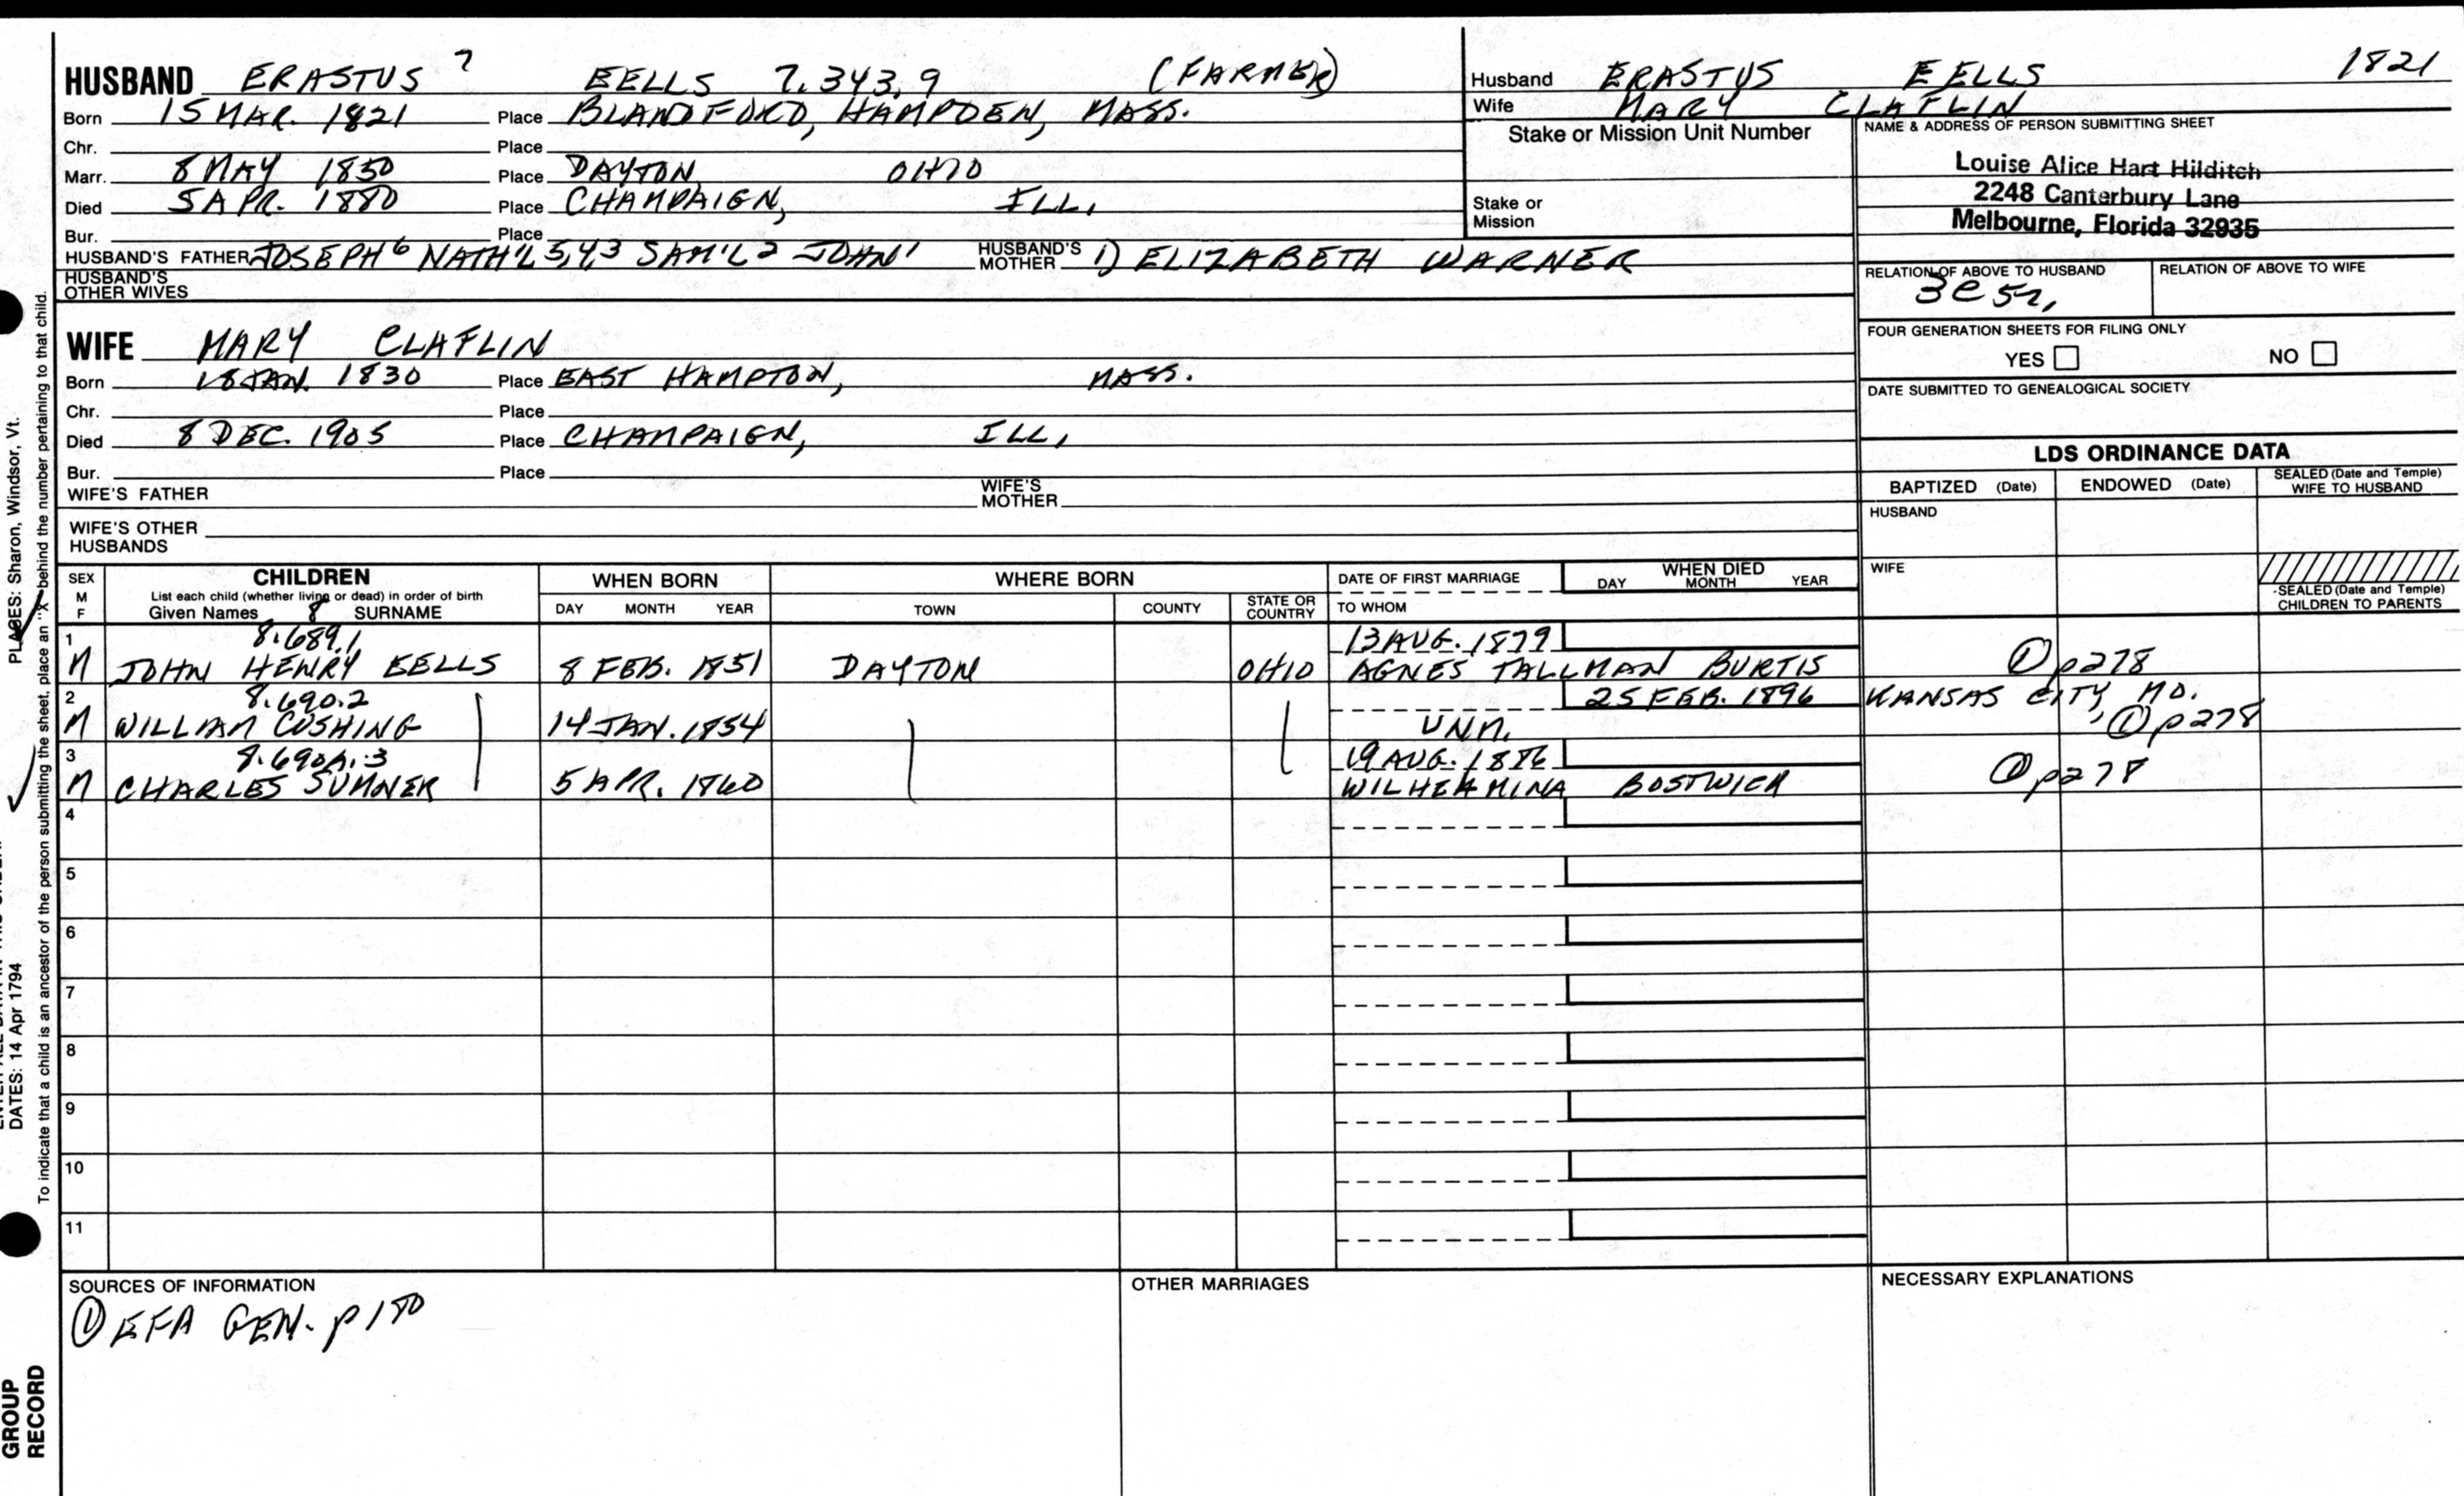 HUSBAND ERASTUS 7 EELLS 7.343.9 (FARMER)
Born 15 MAR. 1821 Place BLANDFORD, HAMPDEN, MASS.
Chr. Place
Marr. 8 MAY 1850 Place DAYTON OHIO
Died 5 APR. 1880 Place CHAMPAIGN, ILL.
Bur. Place
HUSBAND'S FATHER JOSEPH 6 NATH'L 5,4,3 SAM'L 2 JOHN 1 HUSBAND'S MOTHER 1) ELIZABETH WARNER
HUSBAND'S OTHER WIVES
Husband ERASTUS EELLS 1821
Wife MARY CLAFLIN
Stake or Mission Unit Number
Stake or Mission
NAME & ADDRESS OF PERSON SUBMITTING SHEET
Louise Alice Hart Hilditch
2248 Canterbury Lane
Melbourne, Florida 32935
RELATION OF ABOVE TO HUSBAND RELATION OF ABOVE TO WIFE
FOUR GENERATION SHEETS FOR FILING ONLY
YES NO
DATE SUBMITTED TO GENEALOGICAL SOCIETY
WIFE MARY CLAFLIN
Born 18 JAN. 1830 Place EAST HAMPTON, MASS.
Chr. Place
Died 8 DEC. 1905 Place CHAMPAIGN, ILL.
Bur. Place
WIFE'S FATHER WIFE'S MOTHER
WIFE'S OTHER HUSBANDS
LDS ORDINANCE DATA
BAPTIZED (Date) ENDOWED (Date) SEALED (Date and Temple) WIFE TO HUSBAND
HUSBAND
WIFE
SEALED (Date and Temple) CHILDREN TO PARENTS
SEX M F CHILDREN List each child (whether living or dead) in order of birth Given Names 8 SURNAME
WHEN BORN DAY MONTH YEAR
WHERE BORN TOWN COUNTY STATE OR COUNTRY
DATE OF FIRST MARRIAGE TO WHOM
WHEN DIED DAY MONTH YEAR
1 8.689.1 13 AUG. 1879
M JOHN HENRY EELLS 8 FEB. 1851 DAYTON OHIO AGNES TALLMAN BURTIS ① p278
2 8.690.2 25 FEB. 1896 KANSAS CITY, MO.
M WILLIAM CUSHING 14 JAN. 1854 UNM. ① p278
3 8.690A.3 19 AUG. 1886
M CHARLES SUMNER 5 APR. 1860 WILHELMINA BOSTWICK ① p278
4
5
6
7
8
9
10
11
SOURCES OF INFORMATION
① EFA GEN. p180
OTHER MARRIAGES
NECESSARY EXPLANATIONS
PLACES: Sharon, Windsor, Vt.
DATES: 14 Apr 1794
To indicate that a child is an ancestor of the person submitting the sheet, place an "X" behind the number pertaining to that child.
GROUP
RECORD